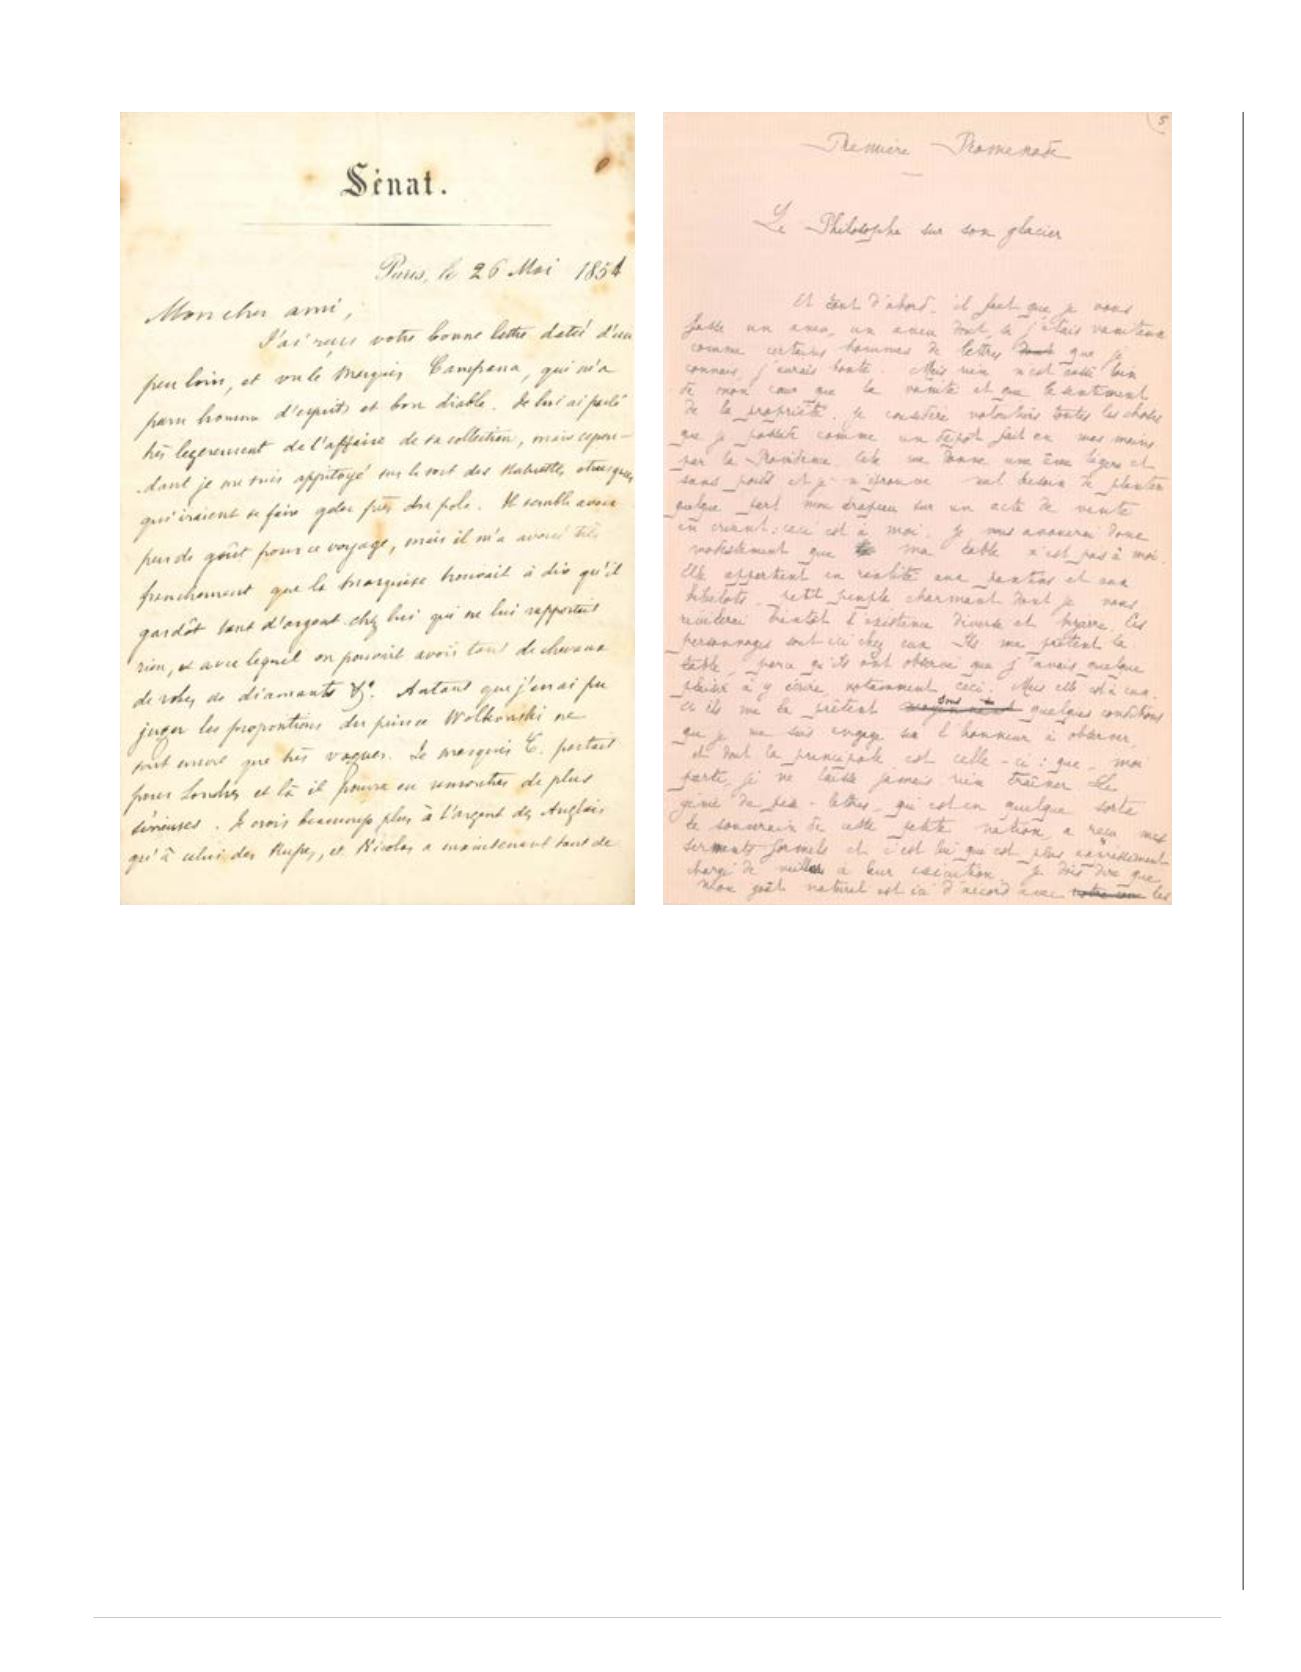 Sénat.
Paris, le 26 Mai 1854
Mon cher ami,
J'ai reçu votre bonne lettre datée d'un
peu loin, et vu le Marquis Campana, qui m'a
paru homme d'esprit et bon diable. Je lui ai parlé
très legerement de l'affaire de sa collection, mais cepen-
dant je me suis appitoyé sur le sort des statuettes etrusques
qui iraient se faire geler près du pole. Il semble avoir
peu de goût pour ce voyage, mais il m'a avoué très
franchement que la Marquise trouvait à dire qu'il
gardât tant d'argent chez lui qui ne lui rapportait
rien, et avec lequel on pouvait avoir tant de chevaux
de robes de diamants &c. Autant que j'en ai pu
juger les propositions du prince Wolkonski ne
sont encore que très vagues. Le marquis C. partait
pour Londres et là il pourra en rencontrer de plus
sérieuses. Je crois beaucoup plus à l'argent des Anglais
qu'à celui des Russes, et Nicolas a maintenant tant de
5
Première Promenade
Le Philosophe sur son glacier
Et tout d'abord, il faut que je vous
fasse un aveu, un aveu dont, si j'étais vaniteux
comme certains hommes de lettres que je
connais, j'aurais honte. Mais rien n'est aussi loin
de mon cœur que la vanité et que le sentiment
de la propriété. Je considère volontiers toutes les choses
que je possède comme un dépôt fait en mes mains
par la Providence. Cela me donne une âme légère et
sans poids et je n'éprouve nul besoin de planter
quelque part mon drapeau sur un acte de vente
en criant : ceci est à moi. Je vous avouerai donc
modestement que ma table n'est pas à moi.
Elle appartient en réalité aux pantins et aux
bibelots, petit peuple charmant dont je vous
l'existence diverse et bizarre. Ces
personnages sont ici chez eux. Ils me prêtent la
table, parce qu'ils ont observé que j'avais quelque
plaisir à y écrire, notamment ceci. Mais elle est à eux.
Et ils me la prêtent sous quelques conditions
que je me suis engagé sur l'honneur à observer,
et dont la principale est celle-ci : que, moi
parti, je ne laisse jamais rien traîner. Le
génie de ces lettres, qui est en quelque sorte
le souverain de cette petite nation, a reçu mes
serments formels et c'est lui qui est plus
chargé de veiller à leur exécution. Je dois dire que
mon goût naturel est ici d'accord avec les